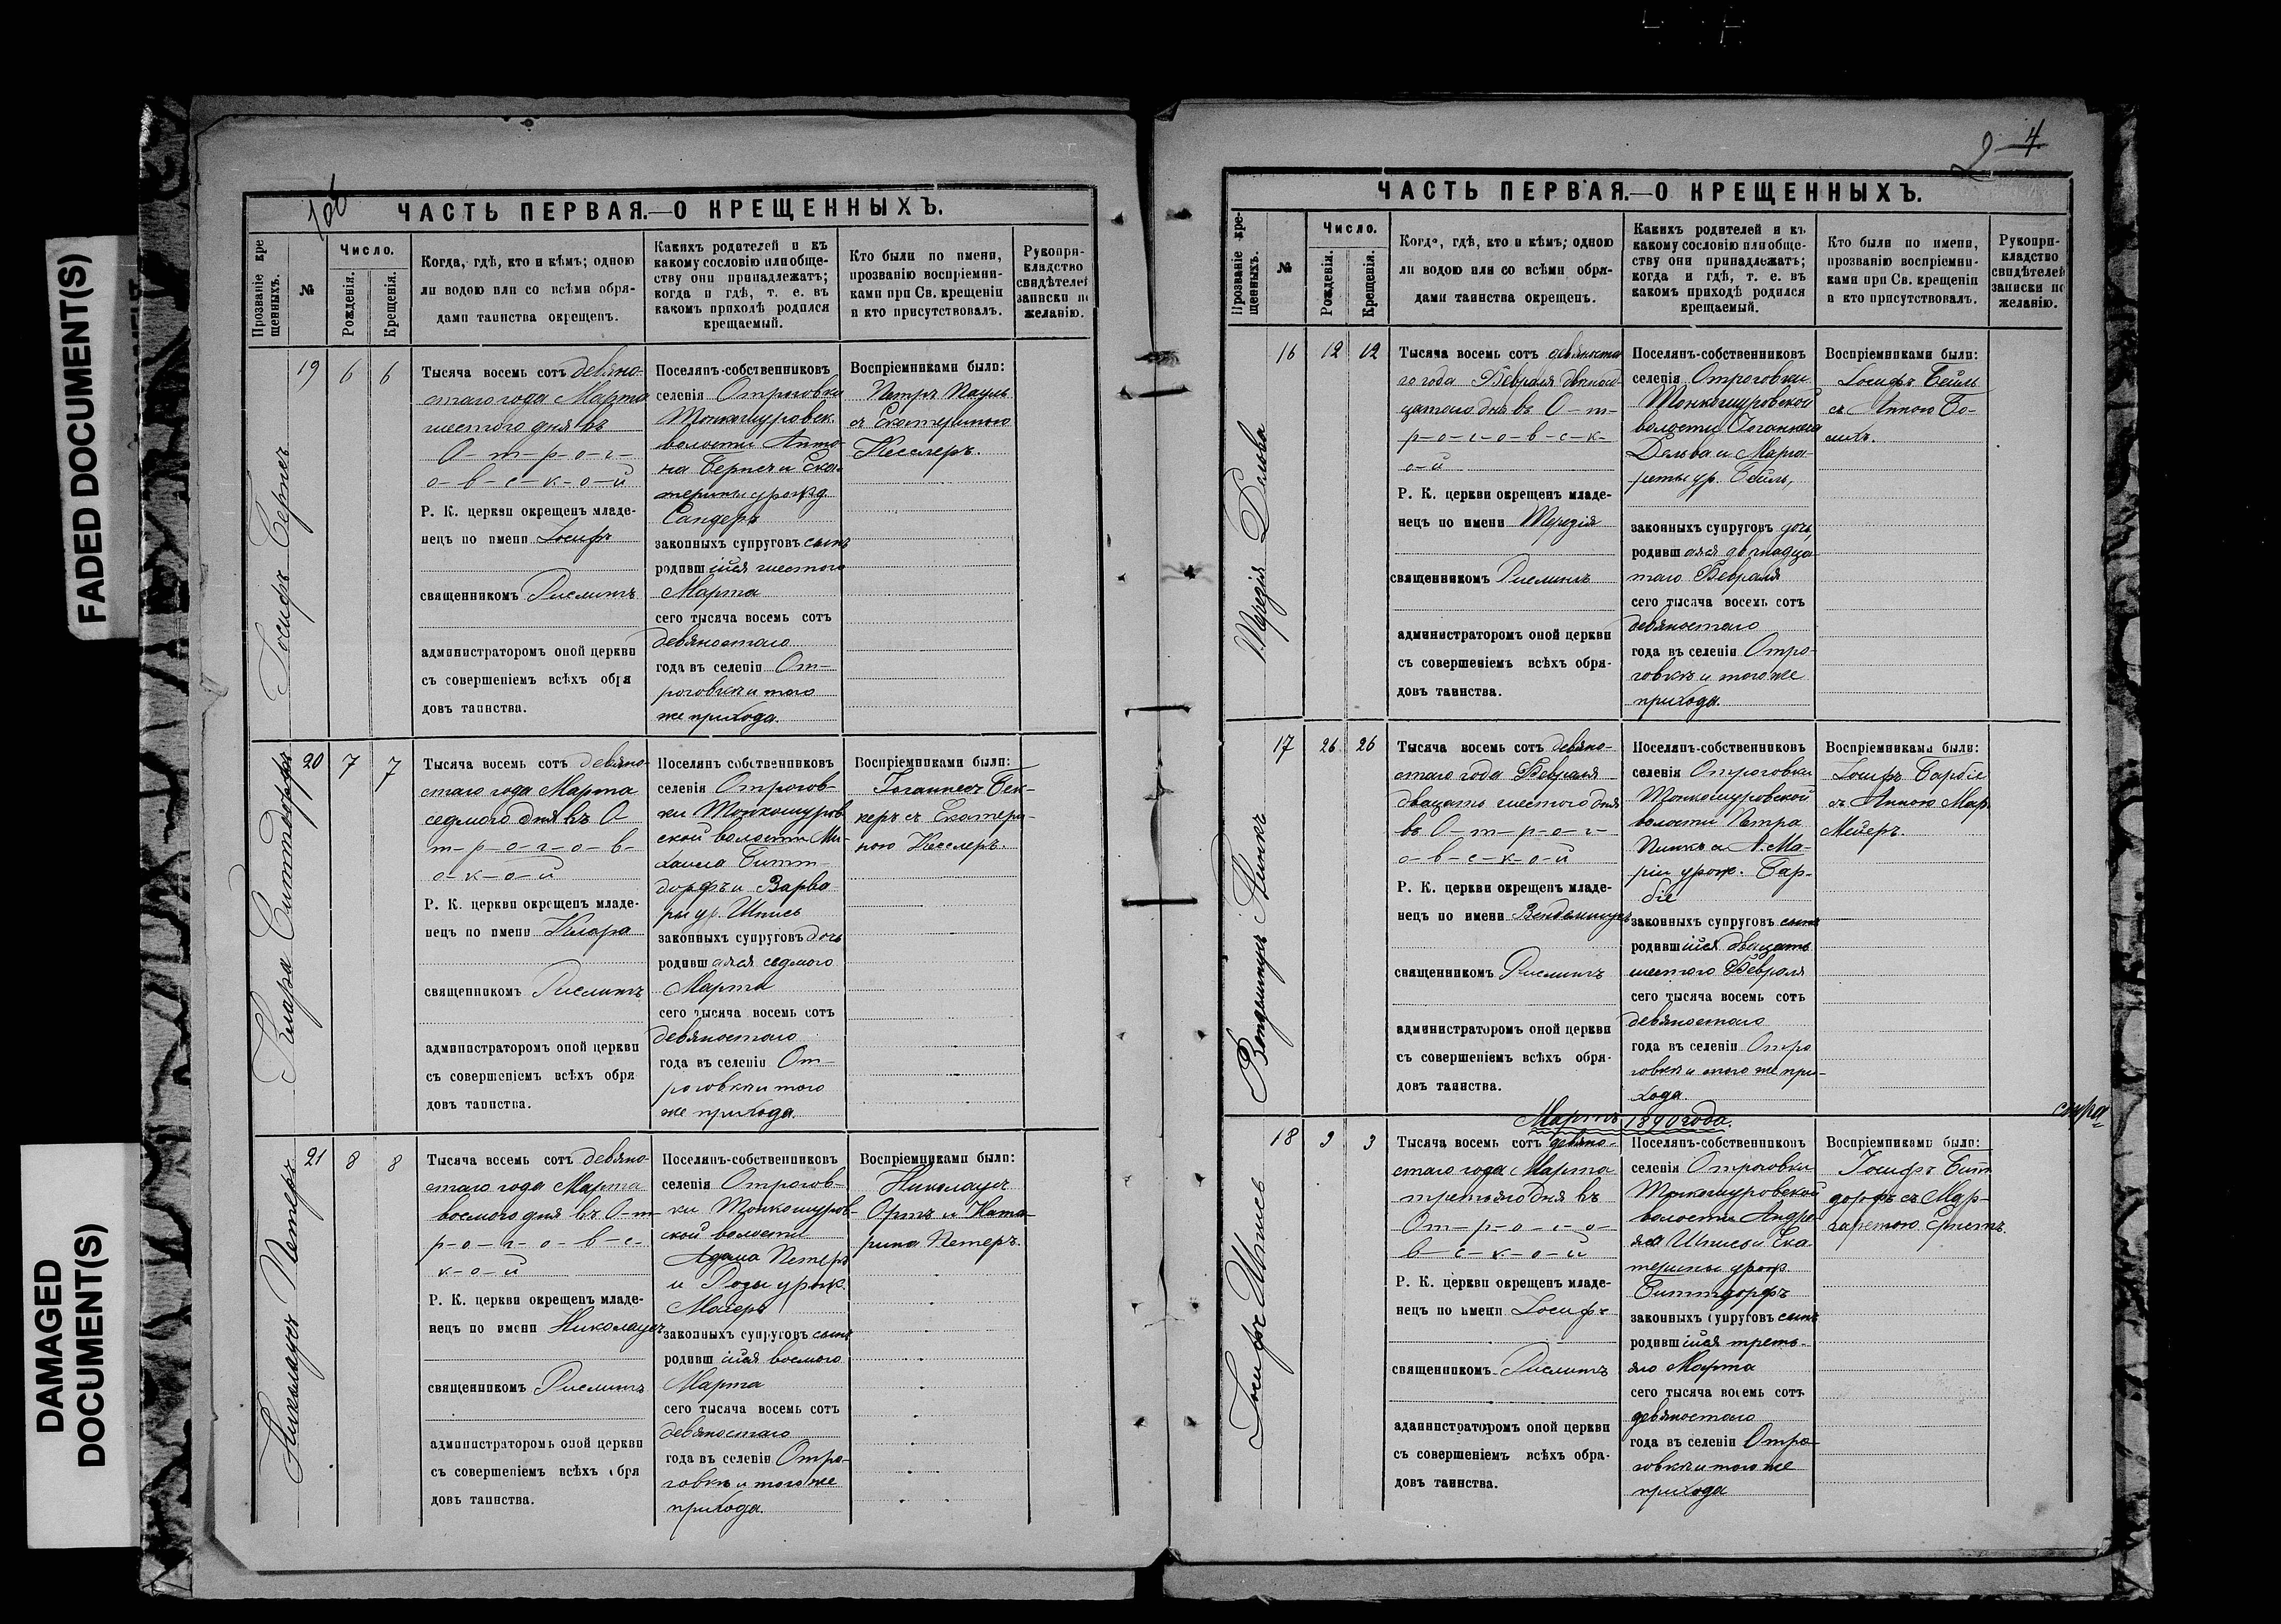 FADED DOCUMENT(S)
DAMAGED
DOCUMENT(S)
ЧАСТЬ ПЕРВАЯ.—О КРЕЩЕННЫХЪ.
Прозваніе кре
щенныхъ.
№
Число.
Рожденія.
Крещенія.
Когда, гдѣ, кто и кѣмъ; одною
ли водою или со всѣми обря-
дами таинства окрещенъ.
Какихъ родителей и къ
какому сословію или обще-
ству они принадлежатъ;
когда и гдѣ, т. е. въ
какомъ приходѣ родился
крещаемый.
Кто были по имени,
прозванію воспріемни-
ками при Св. крещеніи
и кто присутствовалъ.
Рукопри-
кладство
свидѣтелей
записки по
желанію.
Іосифъ Бернсъ
19 6 6
Тысяча восемь сотъ девяно-
стаго года Марта
шестого дня въ
О-т-р-о-г-
о-в-с-к-о-й
Р. К. церкви окрещенъ младе-
нецъ по имени Іосифъ
священникомъ Рислингъ
администраторомъ оной церкви
съ совершеніемъ всѣхъ обря
довъ таинства.
Поселянъ-собственниковъ
селенія Отроговка
Тонкошуровск.
волости Анто-
на Бернсъ и Ека-
терины урожд
Сандеръ
законныхъ супруговъ сынъ
родившійся шестого
Марта
сего тысяча восемь сотъ
девяностаго
года въ селеніи От-
роговкѣ и того
же прихода.
Воспріемниками были:
Петръ Пауль
съ Екатериною
Кесслеръ.
Клара Биттдорфъ
20 7 7
Тысяча восемь сотъ девяно-
стаго года Марта
седмого дня въ О-
т-р-о-г-о-в-
с-к-о-й
Р. К. церкви окрещенъ младе-
нецъ по имени Клара
священникомъ Рислингъ
администраторомъ оной церкви
съ совершеніемъ всѣхъ обря
довъ таинства.
Поселянъ собственниковъ
селенія Отрогов-
ки Тонкошуров
ской волости Ми-
хаила Битт-
дорфъ и Варва-
ры ур. Шписъ
законныхъ супруговъ дочь
родившаяся седмого
Марта
сего тысяча восемь сотъ
девяностаго
года въ селеніи От-
роговкѣ и того
же прихода.
Воспріемниками были:
Іоганнесъ Бек-
керъ съ Екатери-
ною Кесслеръ.
Николаусъ Петеръ
21 8 8
Тысяча восемь сотъ девяно-
стаго года Марта
восмого дня въ О-т-
р-о-г-о-в-с-
к-о-й
Р. К. церкви окрещенъ младе-
нецъ по имени Николаусъ
священникомъ Рислингъ
администраторомъ оной церкви
съ совершеніемъ всѣхъ обря
довъ таинства.
Поселянъ-собственниковъ
селенія Отрогов-
ки Тонкошуров-
ской волости
Адама Петеръ
и Розы урож.
Маіеръ
законныхъ супруговъ сынъ
родившійся восмого
Марта
сего тысяча восемь сотъ
девяностаго
года въ селеніи Отро-
говкѣ и того же
прихода.
Воспріемниками были:
Николаусъ
Ортъ и Ката-
рина Петеръ.
2 4
ЧАСТЬ ПЕРВАЯ.—О КРЕЩЕННЫХЪ.
Прозваніе кре-
щенныхъ.
№
Число.
Рожденія.
Крещенія.
Когда, гдѣ, кто и кѣмъ; одною
ли водою или со всѣми обря-
дами таинства окрещенъ.
Какихъ родителей и къ
какому сословію или обще-
ству они принадлежатъ;
когда и гдѣ, т. е. въ
какомъ приходѣ родился
крещаемый.
Кто были по имени,
прозванію воспріемни-
ками при Св. крещеніи
и кто присутствовалъ.
Рукопри-
кладство
свидѣтелей
записки по
желанію.
Терезія Дельва
16 12 12
Тысяча восемь сотъ девяноста
го года Февраля двенад-
цатаго дня въ О-т-
р-о-г-о-в-с-к-
о-й
Р. К. церкви окрещенъ младе-
нецъ по имени Терезія
священникомъ Рислингъ
администраторомъ оной церкви
съ совершеніемъ всѣхъ обря-
довъ таинства.
Поселянъ-собственниковъ
селенія Отроговки
Тонкошуровской
волости Іоганнеса
Дельва и Марга-
реты ур. Бейль,
законныхъ супруговъ дочь,
родившаяся двѣнадца-
таго Февраля
сего тысяча восемь сотъ
девяностаго
года въ селеніи Отро-
говкѣ и того же
прихода.
Воспріемниками были:
Іосифъ Бейль
съ Анною Бо-
Вендилинусъ Пинкъ
17 26 26
Тысяча восемь сотъ девяно-
стаго года Февраля
двацать шестого дня
въ О-т-р-о-г-
о-в-с-к-о-й
Р. К. церкви окрещенъ младе-
нецъ по имени Вендилинусъ
священникомъ Рислингъ
администраторомъ оной церкви
съ совершеніемъ всѣхъ обря-
довъ таинства.
Поселянъ-собственниковъ
селенія Отроговки
Тонкошуровской
волости Петра
Пинкъ и А. Ма-
ріи урож. Бар-
біе
законныхъ супруговъ сынъ
родившійся двацать
шестого Февраля
сего тысяча восемь сотъ
девяностаго
года въ селеніи Отро
говкѣ и того же при-
хода.
Воспріемниками были:
Іосифъ Барбіе
съ Анною Мар.
Мейеръ.
Мартъ 1890 года.
Іосифъ Шписъ
18 3 3
Тысяча восемь сотъ девяно-
стаго года Марта
третьяго дня въ
От-р-о-г-о-
в-с-к-о-й
Р. К. церкви окрещенъ младе-
нецъ по имени Іосифъ
священникомъ Рислингъ
администраторомъ оной церкви
съ совершеніемъ всѣхъ обря-
довъ таинства.
Поселянъ-собственниковъ
селенія Отроговки
Тонкошуровской
волости Андре-
яса Шписъ и Ека-
терины урож
Биттдорфъ
законныхъ супруговъ сынъ
родившійся треть-
яго Марта
сего тысяча восемь сотъ
девяностаго
года въ селеніи Отро-
говкѣ и того же
прихода
Воспріемниками были:
Іосифъ Битт
дорфъ съ Мар-
гаретою Эрнстъ.